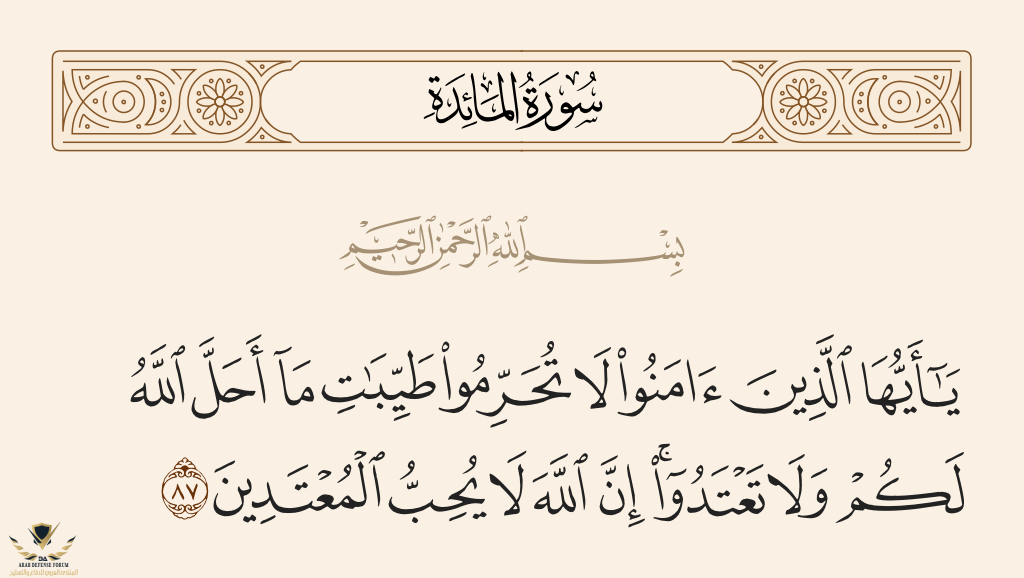 سُورَةُ المَائِدَةِ
بِسْمِ ٱللَّهِ ٱلرَّحْمَٰنِ ٱلرَّحِيمِ
يَـٰٓأَيُّهَا ٱلَّذِينَ ءَامَنُوا۟ لَا تُحَرِّمُوا۟ طَيِّبَـٰتِ مَآ أَحَلَّ ٱللَّهُ
لَكُمْ وَلَا تَعْتَدُوٓا۟ ۚ إِنَّ ٱللَّهَ لَا يُحِبُّ ٱلْمُعْتَدِينَ ٨٧
ARAB DEFENSE FORUM
المنتدى العربي للدفاع والتسليح